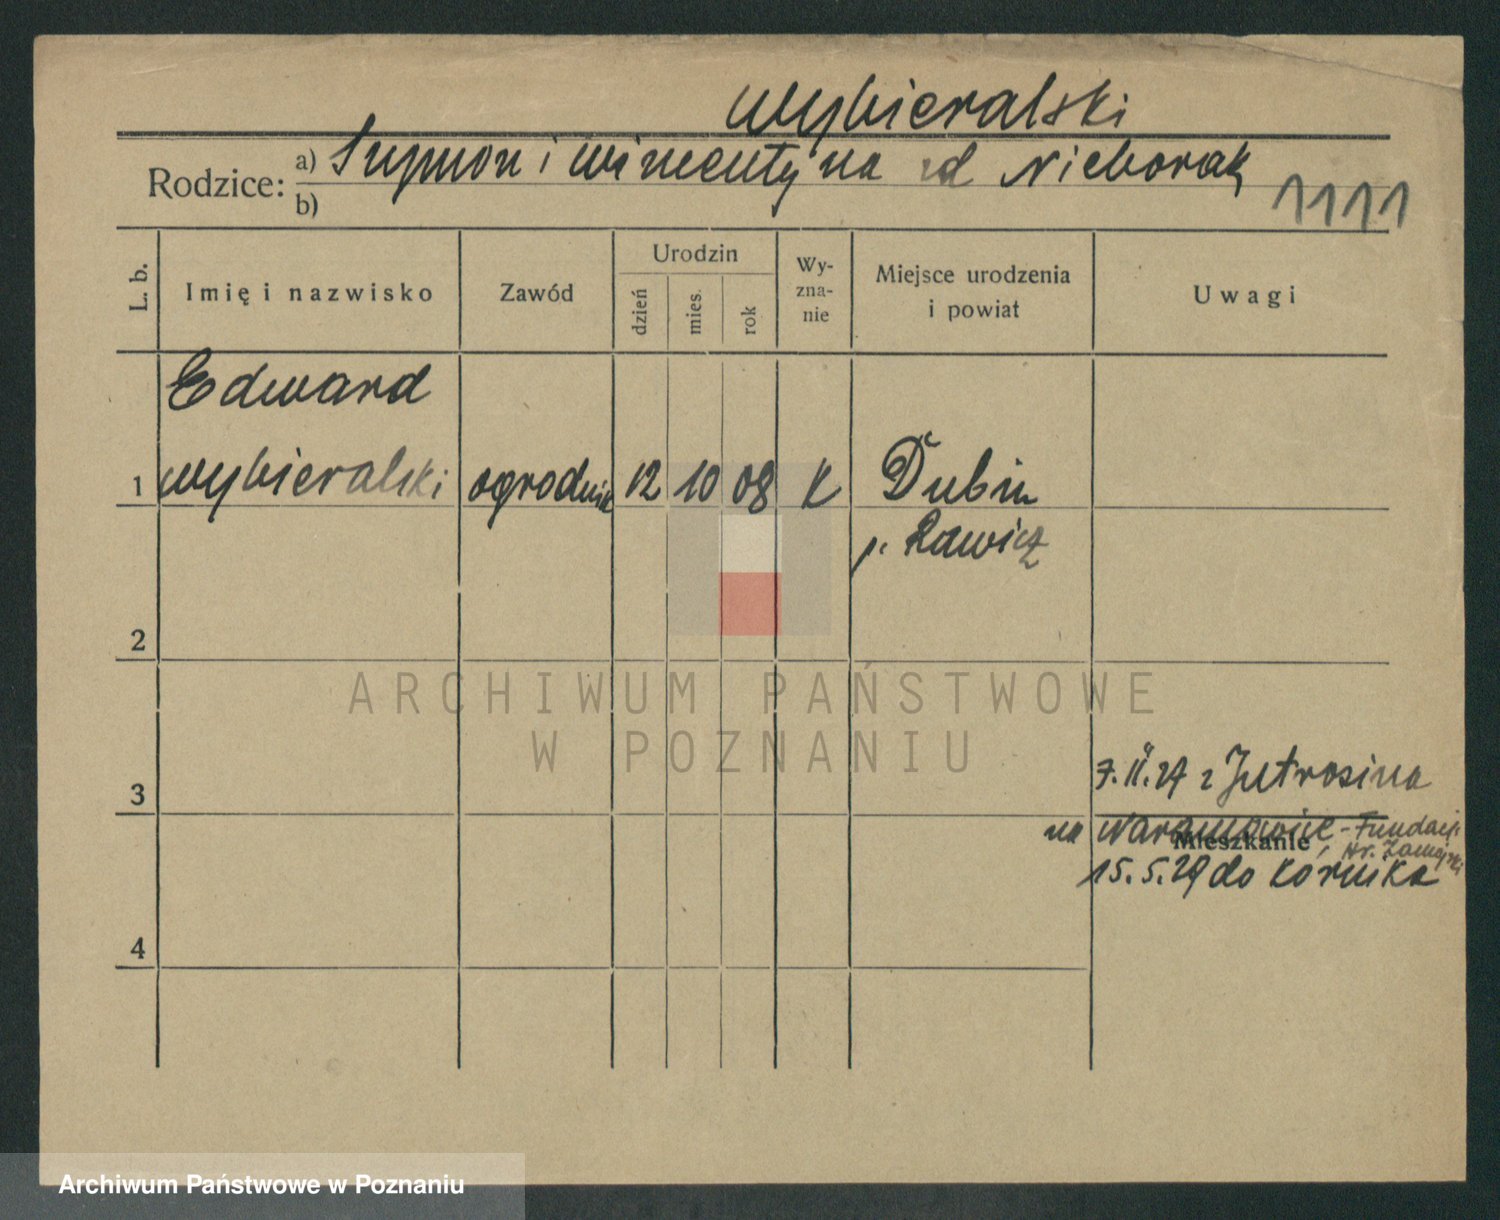 Wybieralski
Rodzice: a) Szymon i Wincentyna zd Nieborak
b)
1111
L. b. Imię i nazwisko Zawód Urodzin dzień mies. rok Wy-zna-nie Miejsce urodzenia i powiat Uwagi
Edward
1 Wybieralski ogrodnik 12 10 08 K Dubin
p. Rawicz
2
ARCHIWUM PAŃSTWOWE
W POZNANIU
7.II.27 z Jutrosina
3
na Naramowice - Fundacji
Mieszkanie
Hr. Zamojski
15.5.29 do Kórnika
4
Archiwum Państwowe w Poznaniu